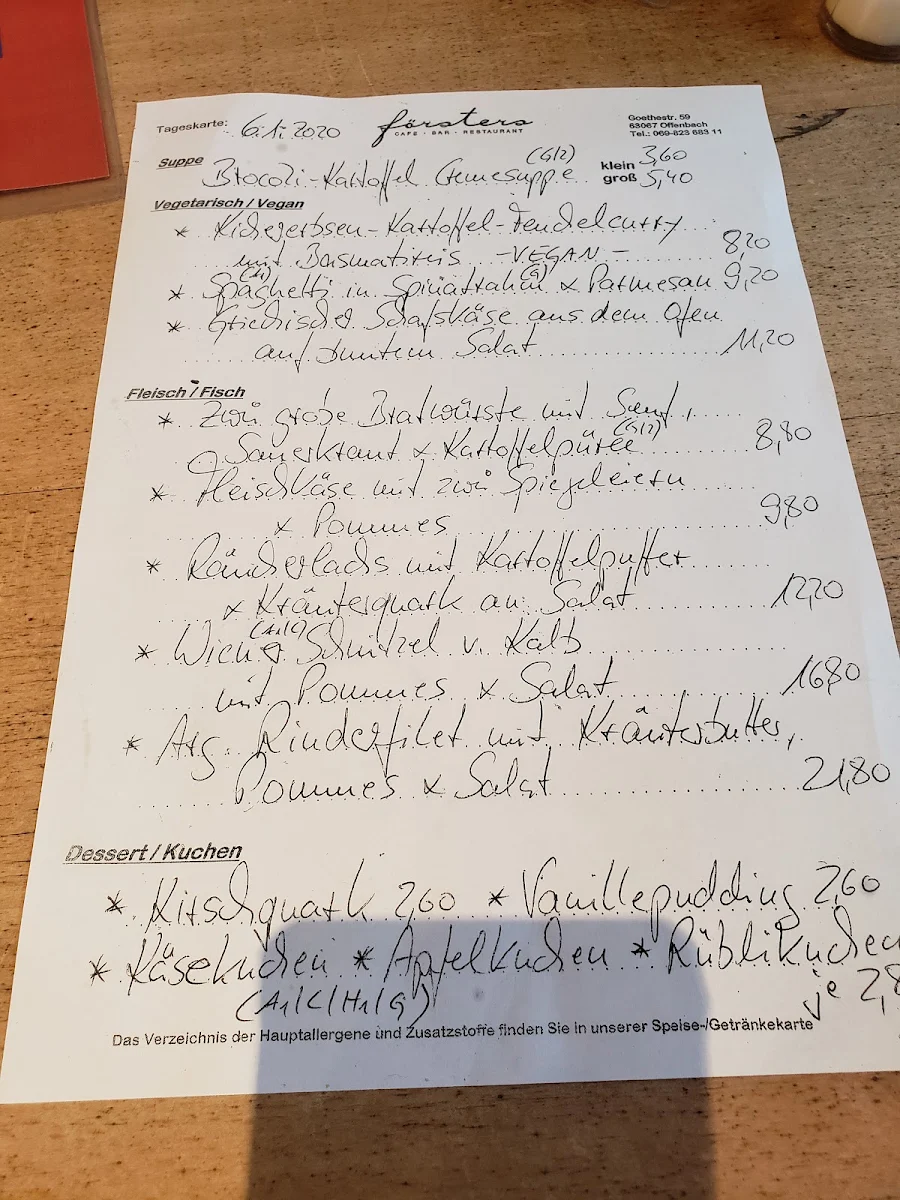 Tageskarte: 6.1.2020
försters
CAFE · BAR · RESTAURANT
Goethestr. 59
63067 Offenbach
Tel.: 069-823 683 11
Suppe
(G/2)
Brocoli-Kartoffel Cremesuppe
klein 3,60
groß 5,40
Vegetarisch / Vegan
* Kichererbsen-Kartoffel-Fenchelcurry
mit Basmatireis -VEGAN- 8,20
(A1) (G)
* Spaghetti in Spinatrahm & Parmesan 9,20
* Griechischer Schafskäse aus dem Ofen
auf buntem Salat 11,20
Fleisch / Fisch
* Zwei grobe Bratwürste mit Senf,
(G/2)
Sauerkraut & Kartoffelpüree 8,80
* Fleischkäse mit zwei Spiegeleiern
& Pommes 9,80
* Räucherlachs mit Kartoffelpuffer
& Kräuterquark an Salat 12,20
(A1/C)
* Wiener Schnitzel v. Kalb
mit Pommes & Salat 16,80
* Arg. Rinderfilet mit Kräuterbutter,
Pommes & Salat 21,80
Dessert / Kuchen
* Kirschquark 2,60 * Vanillepudding 2,60
* Käsekuchen * Apfelkuchen * Rüblikuchen
(A1/C/H1/G) je 2,8
Das Verzeichnis der Hauptallergene und Zusatzstoffe finden Sie in unserer Speise-/Getränkekarte